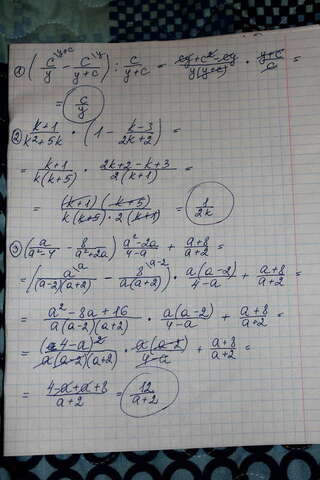 1) (c/y^(\y+c) - c/(y+c)^(\y)) : c/(y+c) = (cy+c²-cy)/(y(y+c)) · (y+c)/c =
= c/y
2) (k+1)/(k²+5k) · (1 - (k-3)/(2k+2)) =
= (k+1)/(k(k+5)) · (2k+2-k+3)/(2(k+1)) =
= ((k+1)(k+5))/(k(k+5)·2(k+1)) = 1/(2k)
3) (a/(a²-4) - 8/(a²+2a)) · (a²-2a)/(4-a) + (a+8)/(a+2) =
= (a^(\a)/((a-2)(a+2)) - 8^(\a-2)/(a(a+2))) · (a(a-2))/(4-a) + (a+8)/(a+2) =
= (a²-8a+16)/(a(a-2)(a+2)) · (a(a-2))/(4-a) + (a+8)/(a+2) =
= (4-a)²/(a(a-2)(a+2)) · (a(a-2))/(4-a) + (a+8)/(a+2) =
= (4-a+a+8)/(a+2) = 12/(a+2)